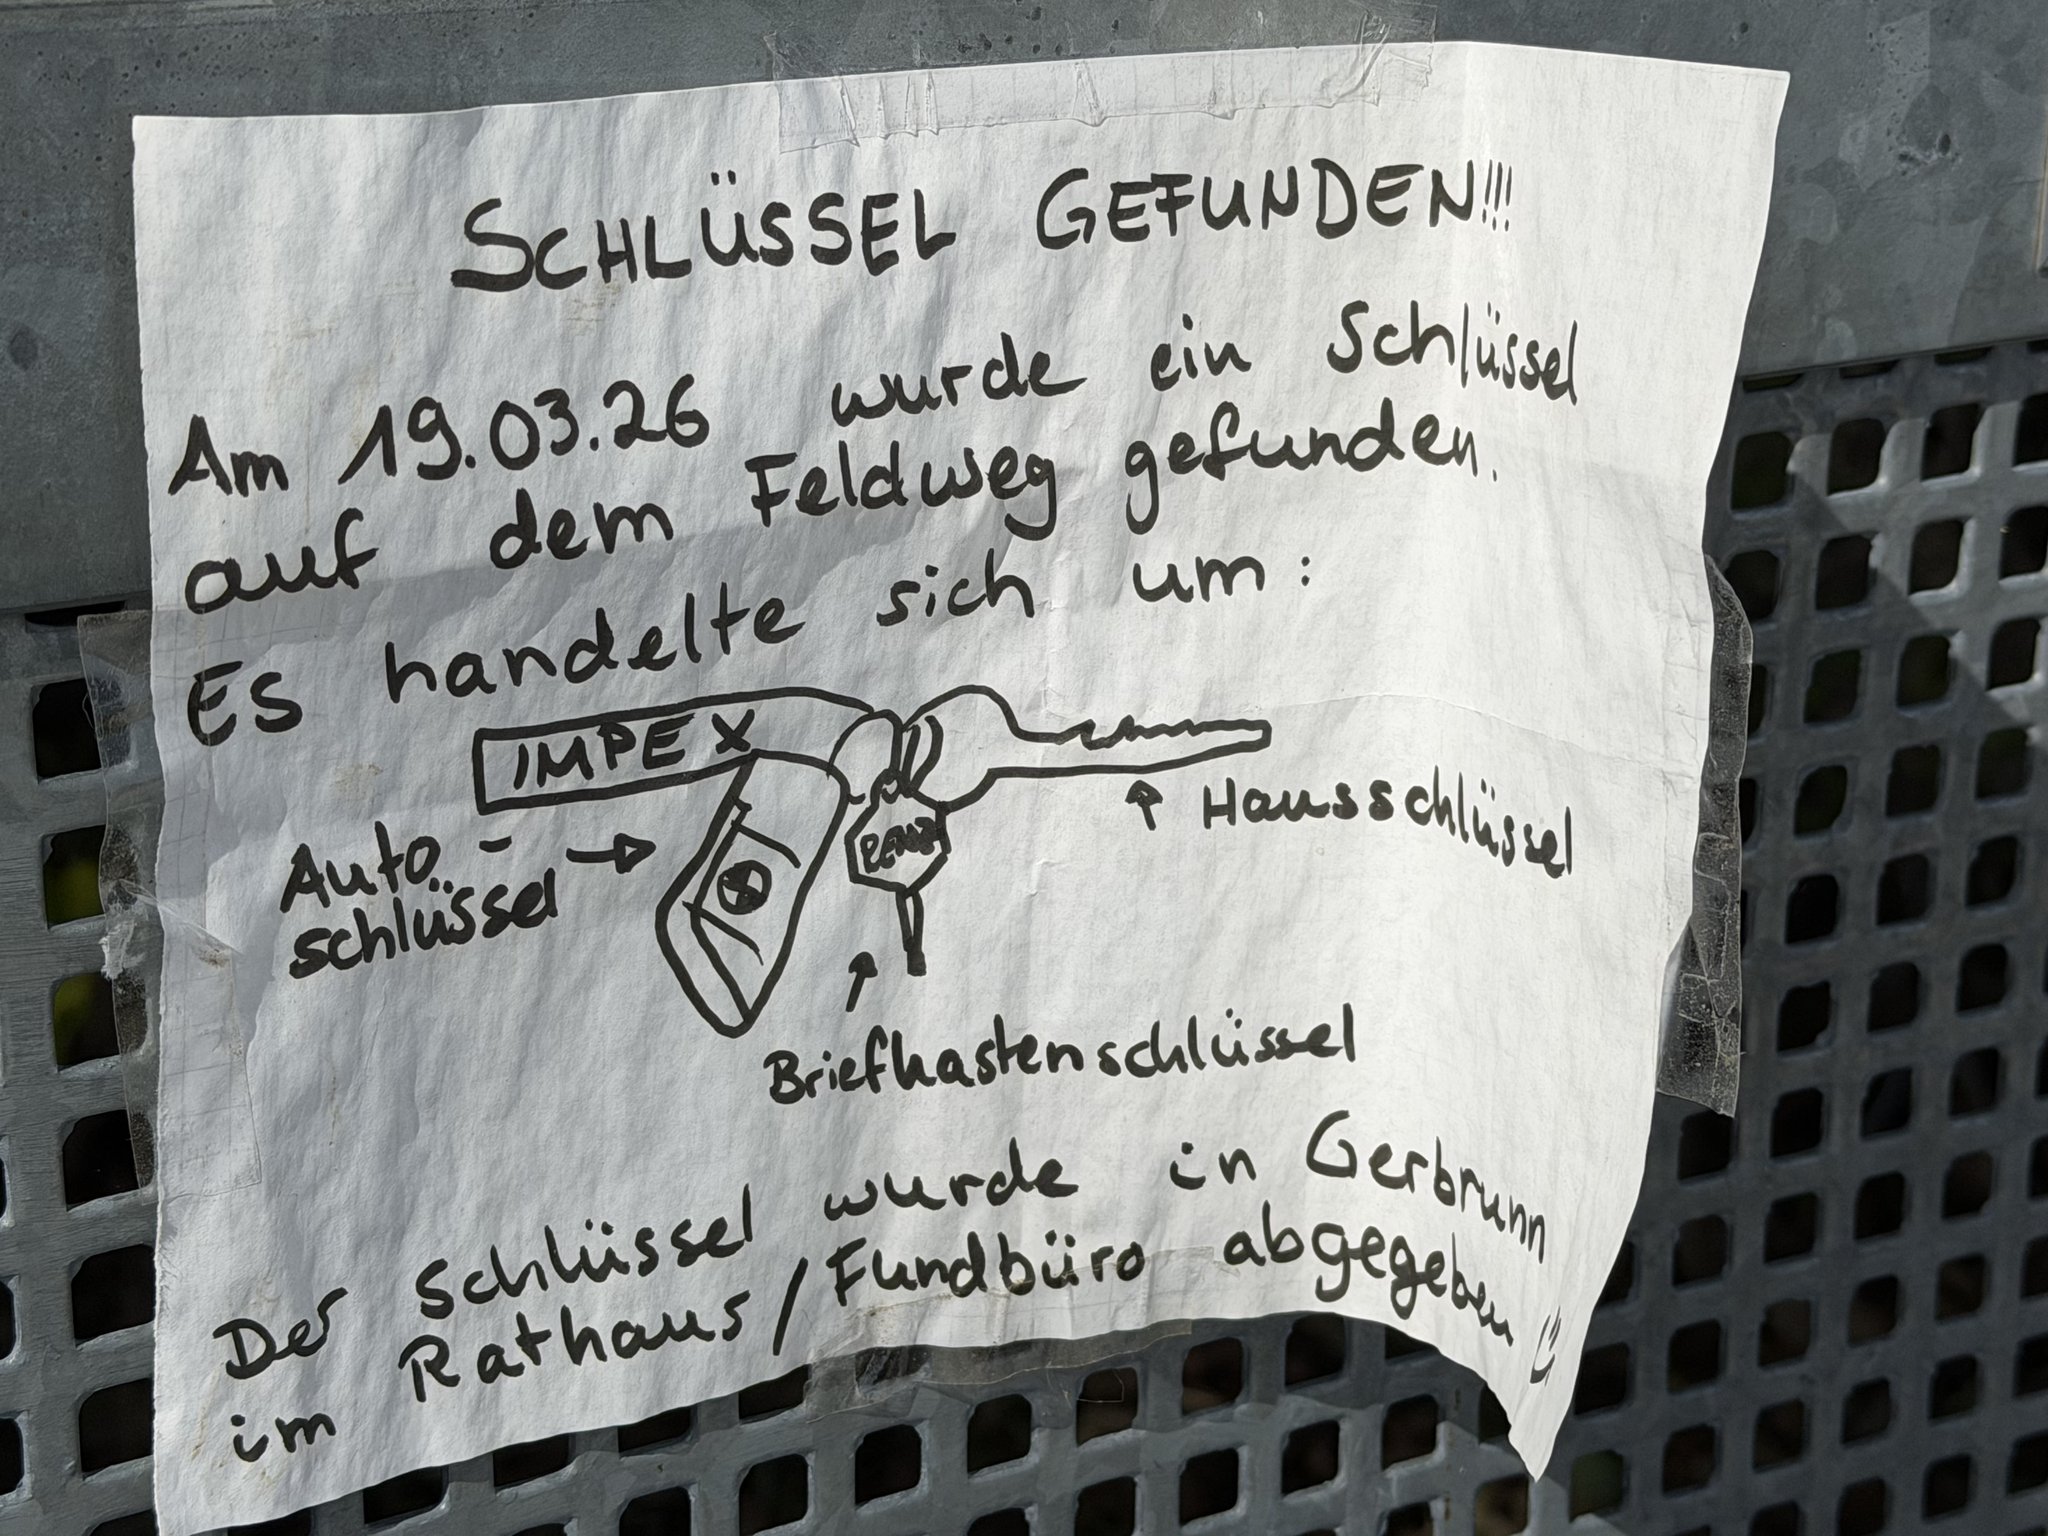 SCHLÜSSEL GEFUNDEN!!!
Am 19.03.26 wurde ein Schlüssel
auf dem Feldweg gefunden.
ES handelte sich um:
IMPEX
Auto-
schlüssel
Hausschlüssel
Briefkastenschlüssel
Der Schlüssel wurde in Gerbrunn
im Rathaus/Fundbüro abgegeben